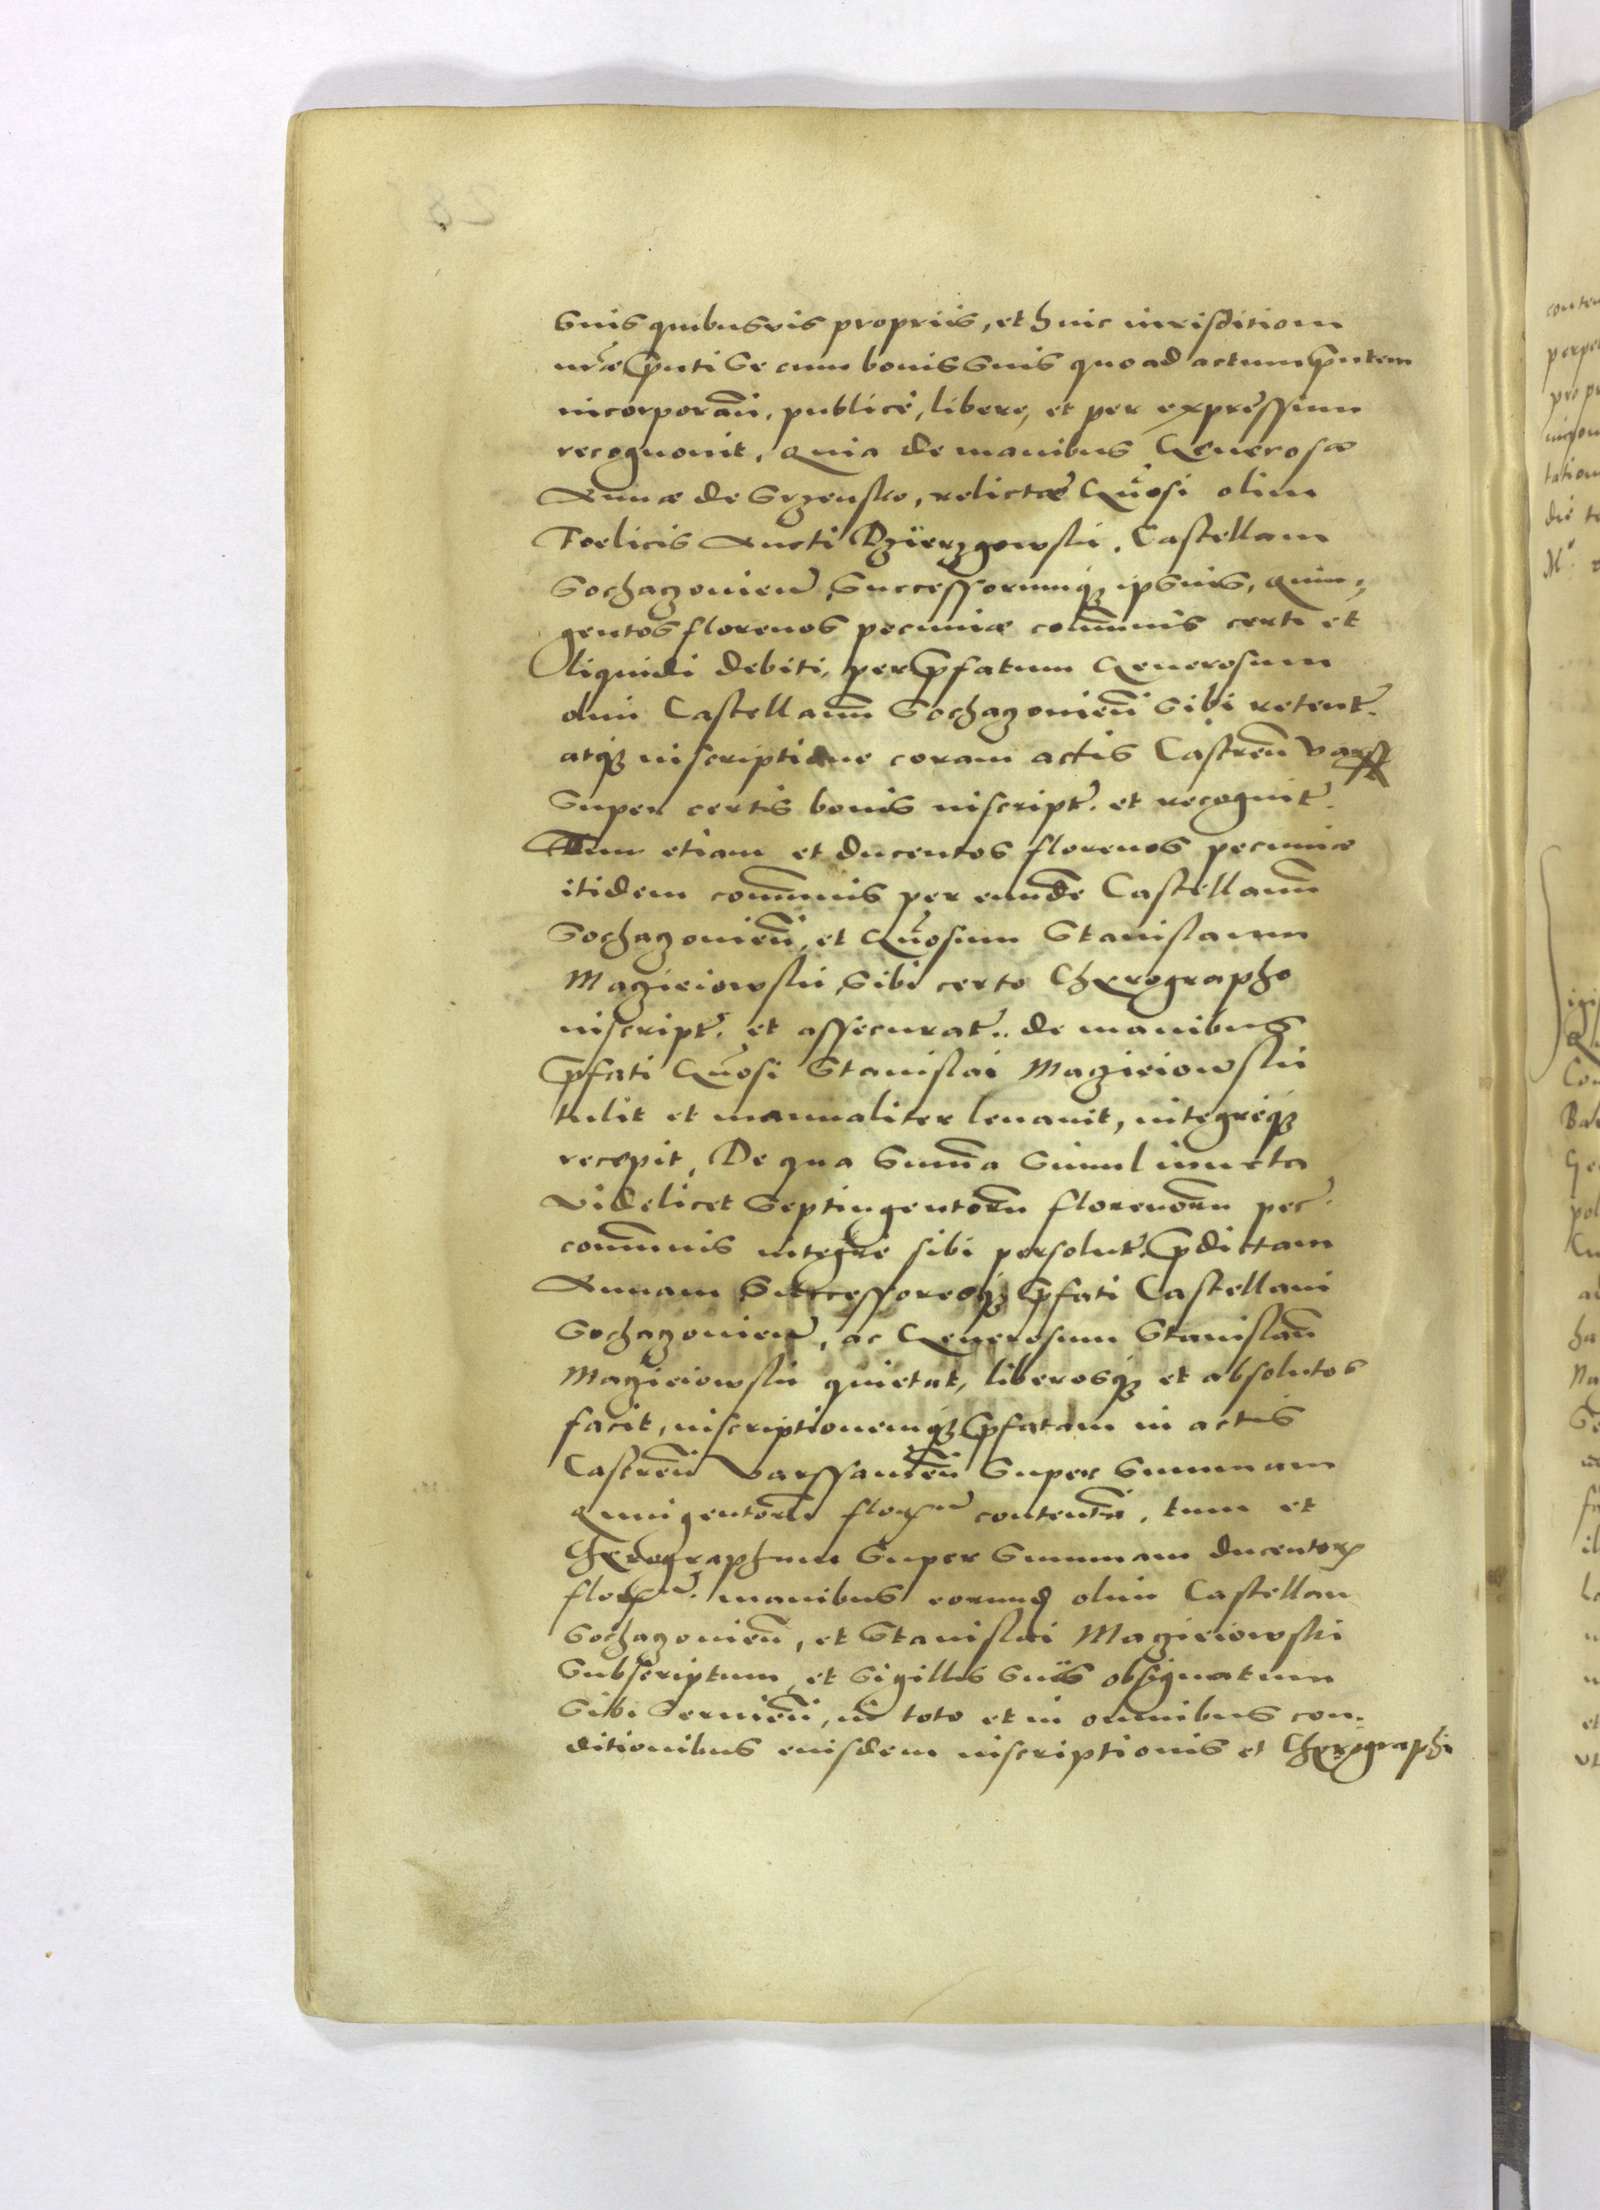 suis quibusvis propriis, et huic iurisditioni
nrae pnti se cum bonis suis quo ad actum pntem
incorporan. publicè, libere, et per expressum
recognovit. Quia de manibus Generosae
Annae de Srzensko, relictae Gnosi olim
Foelicis Aucti Dzierzgowskii, Castellani
Sochazovien Successorumq ipsius, quin-
gentos florenos pecuniae communis certi et
liquidi debiti, per pfatum Generosum
olim Castellanum Sochazovien sibi retent.
atq inscriptione coram actis Castren Varss
super certis bonis inscript. et recognit.
Tum etiam et ducentos florenos pecuniae
itidem communis per eunde Castellanum
Sochazovien, et Gnosum Stanislaum
Magieiowskii sibi certo Chyrographo
inscript. et assecurat. de manibus
pfati Gnosi Stanislai Magieiowskii
tulit et manualiter levavit, integreq
recepit, De qua summa simul iuncta
videlicet septingentorum florenorum pec.
communis integrè sibi persolut. pdictam
Annam Successoresq pfati Castellani
Sochazovien, ac Generosum Stanislaum
Magieiowskii quietat, liberosq et absolutos
facit, inscriptionemq pfatam in actis
Castren Varssavien super summam
Quingentorum flor. content. tum et
Chyrographum super summam ducentor
flor. manibus eorund olim Castellan
Sochazovien, et Stanislai Magieiowskii
subscriptum, et sigillis suis obsignatum
sibi servien, in toto et in omnibus con-
ditionibus eiusdem inscriptionis et Chyrographi